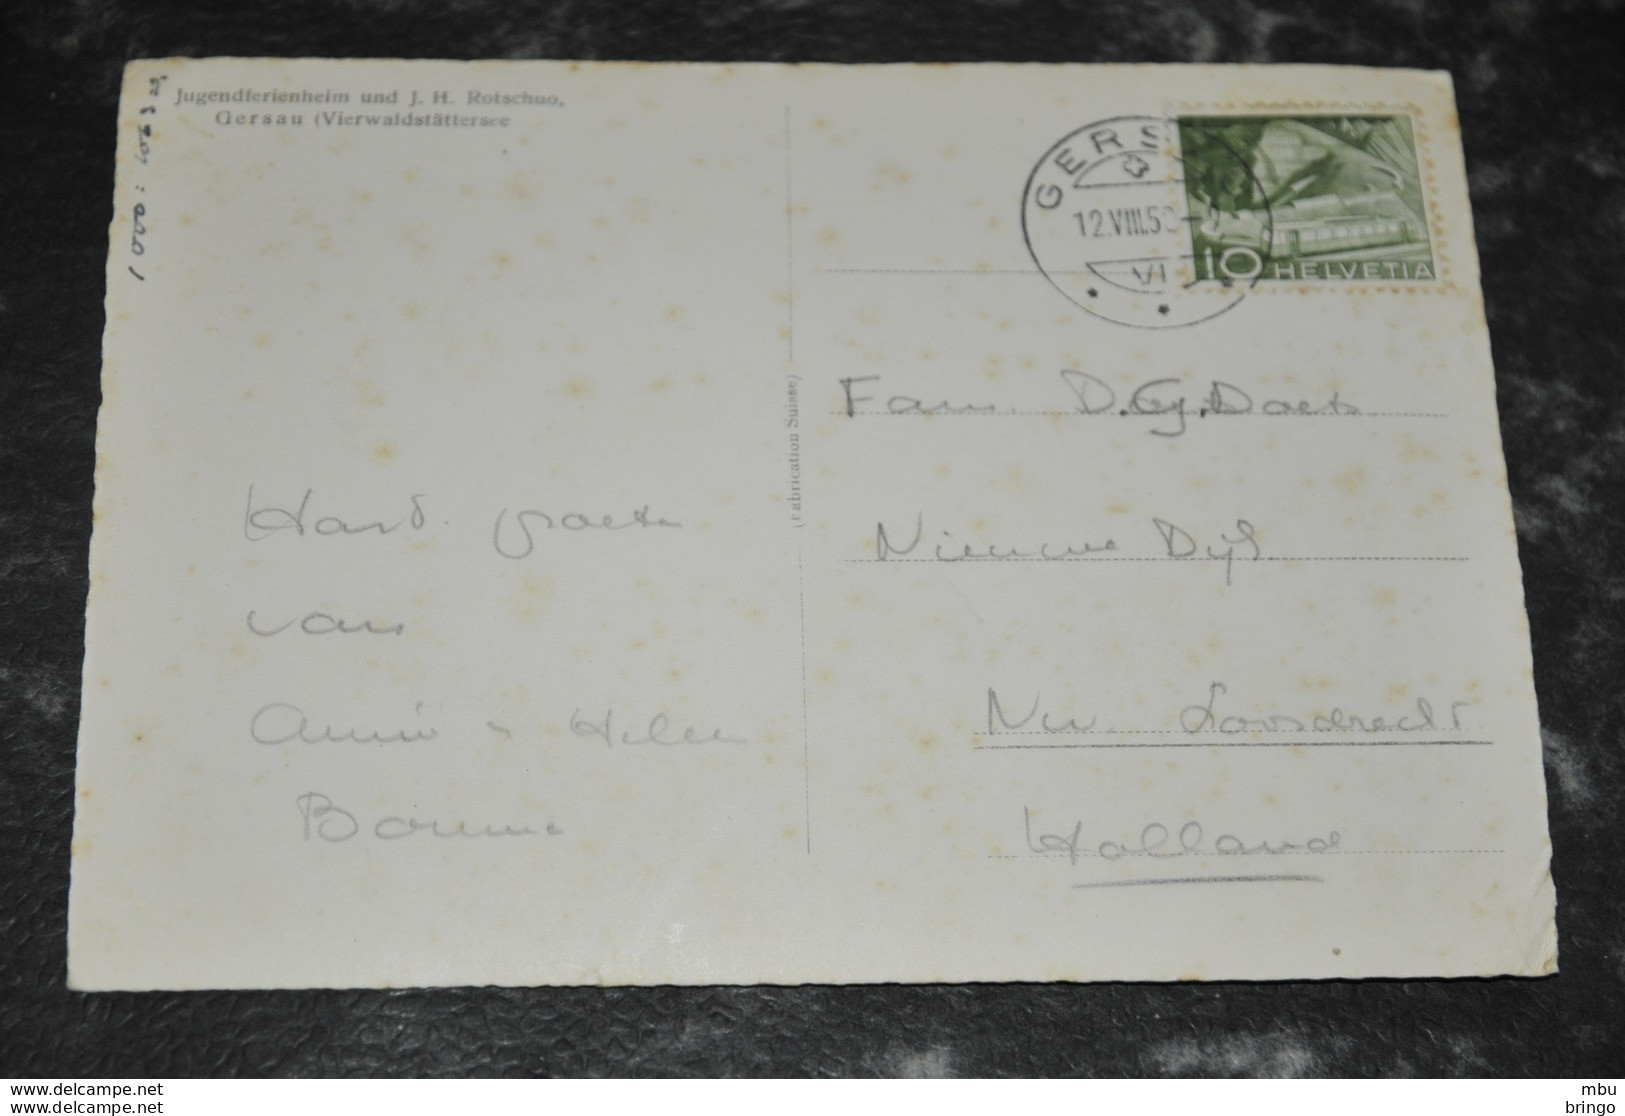 Jugendferienheim und J. H. Rotschuo,
Gersau (Vierwaldstättersee
GERS
12.VIII.5
VI
10 HELVETIA
(Fabrication Suisse)
Fam. D.G. Daets
Nieuwe Dijk
Nw. Loosdrecht
Holland
Hart. groeten
van
Annie & Helen
Boumu
www.delcampe.net
www.delcampe.net
mbu
bringo